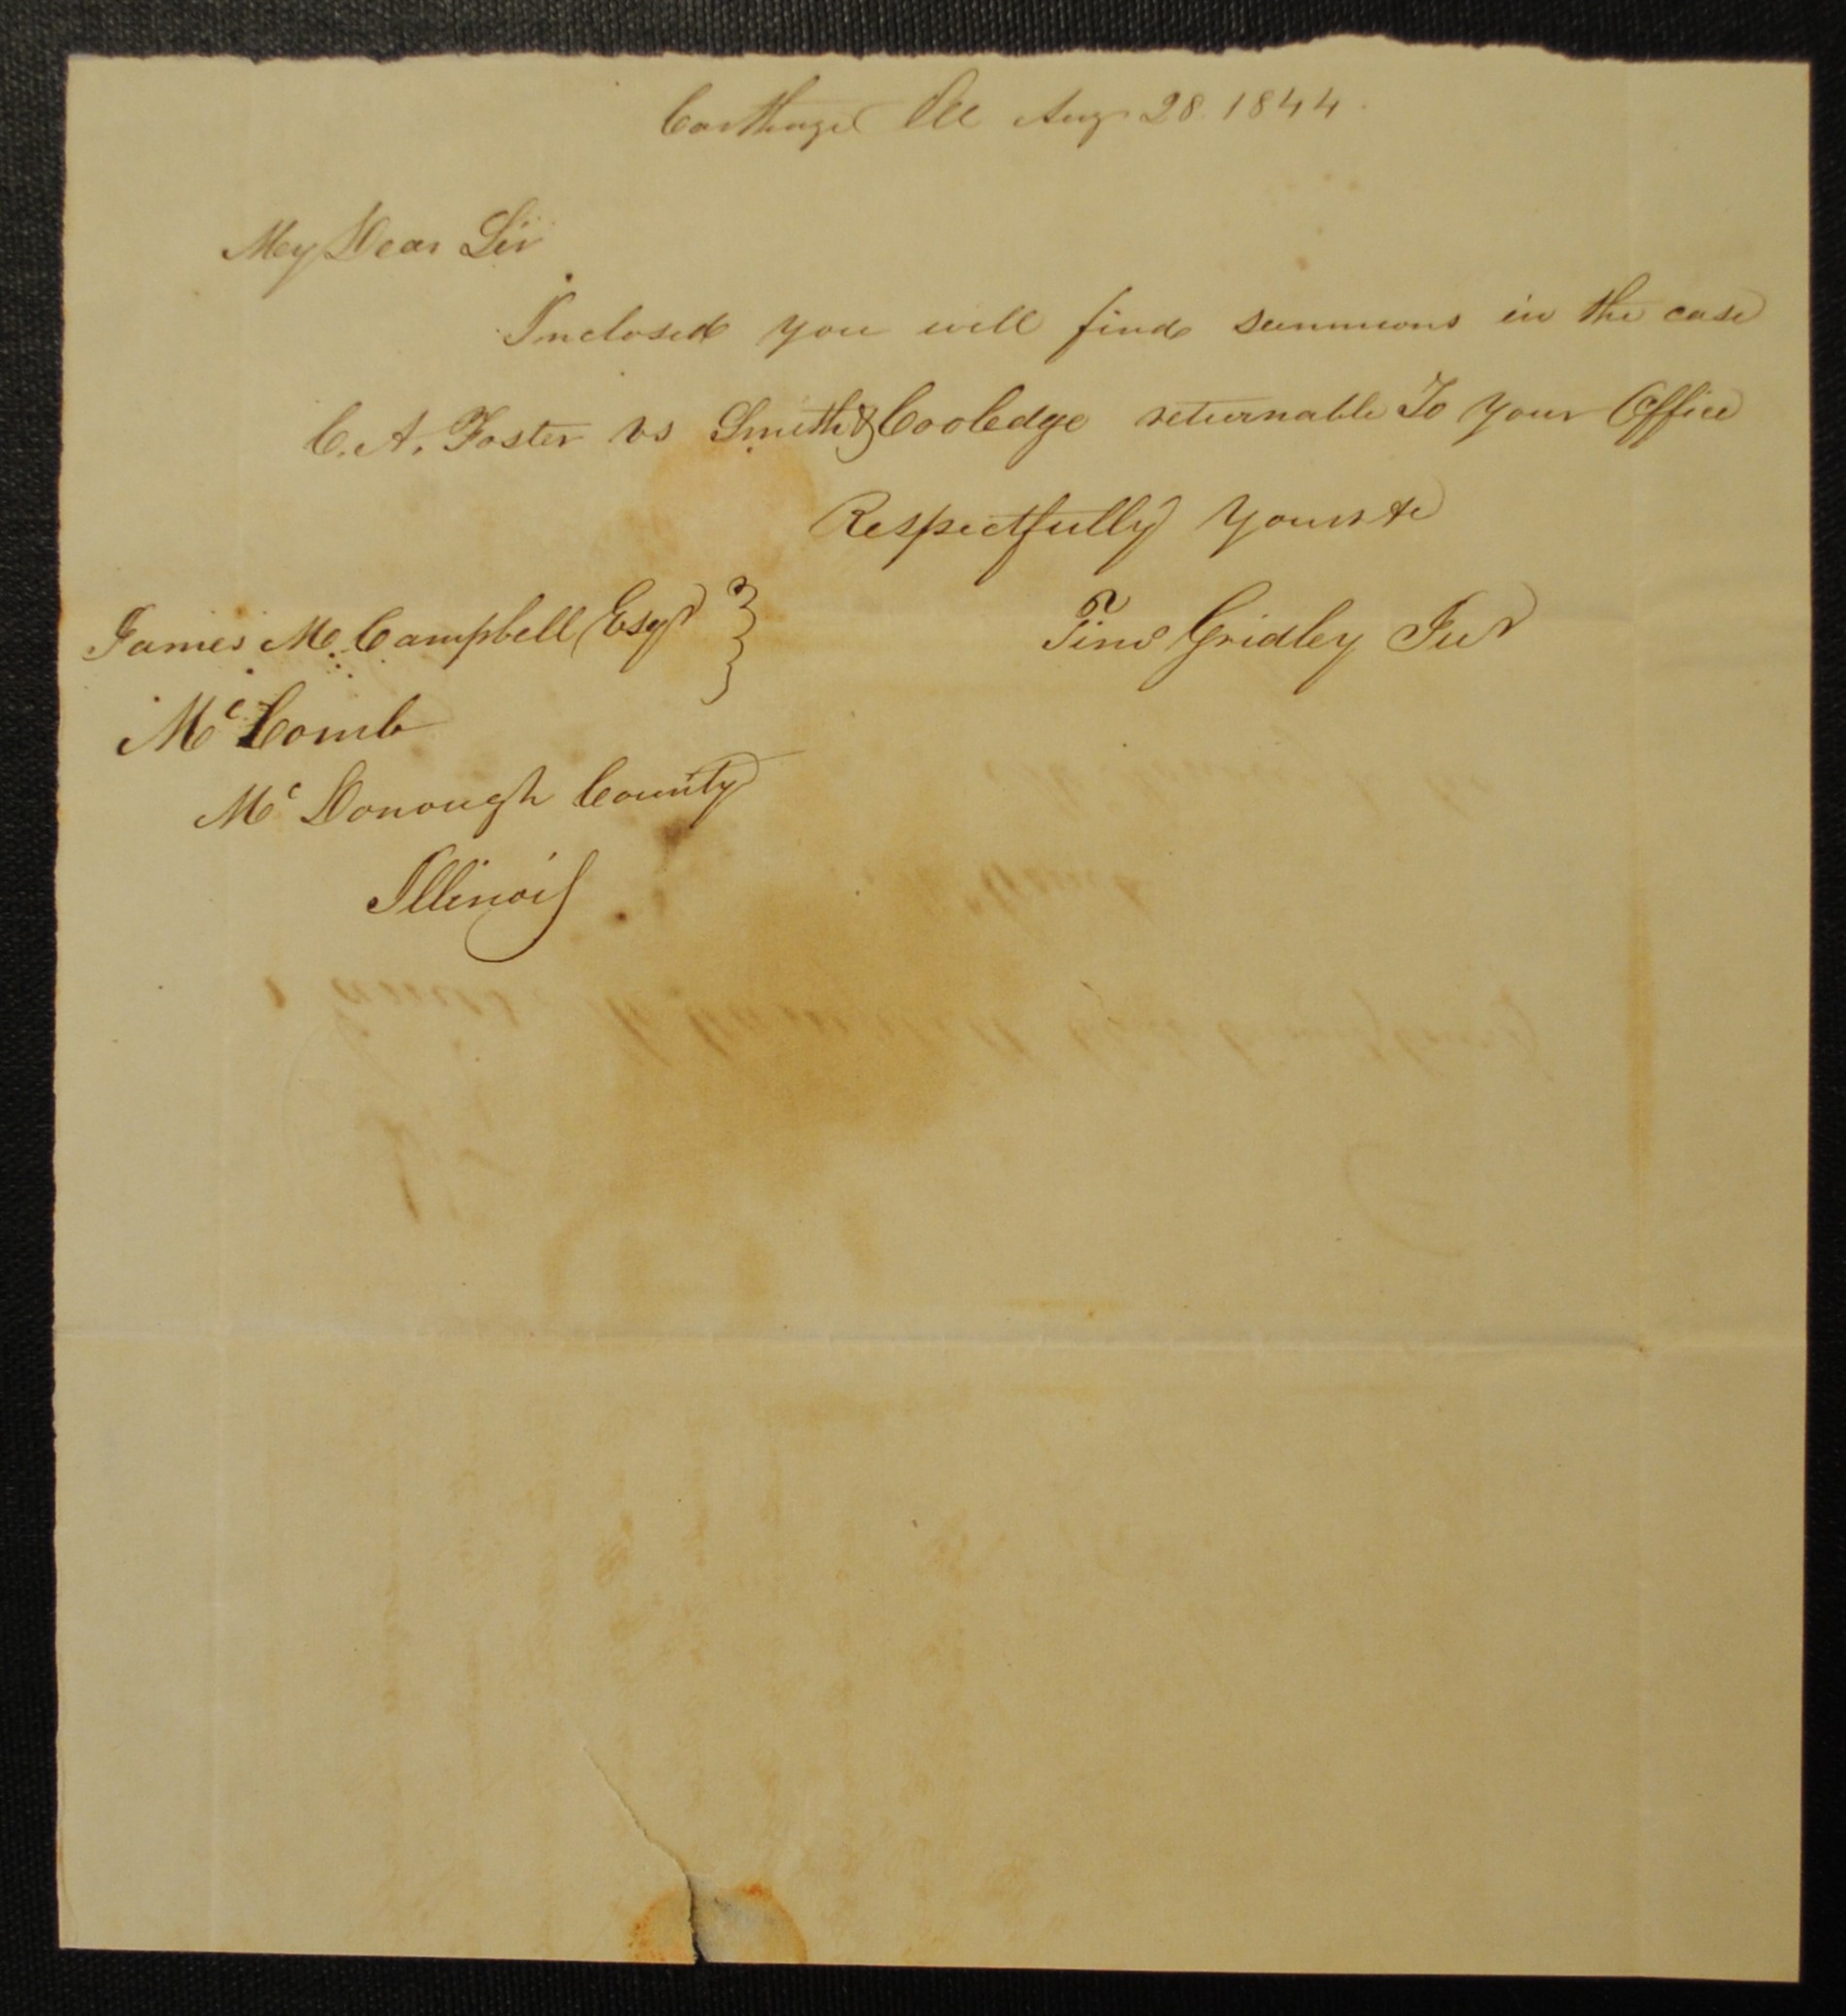 Carthage Ill Aug 28. 1844.
My Dear Sir
Inclosed you will find summons in the case
C. A. Foster vs Smith & Cooledge returnable To your Office
Respectfully Yours &c
James M. Campbell Esqr
Gridley Jur
McComb
McDonough County
Illinois